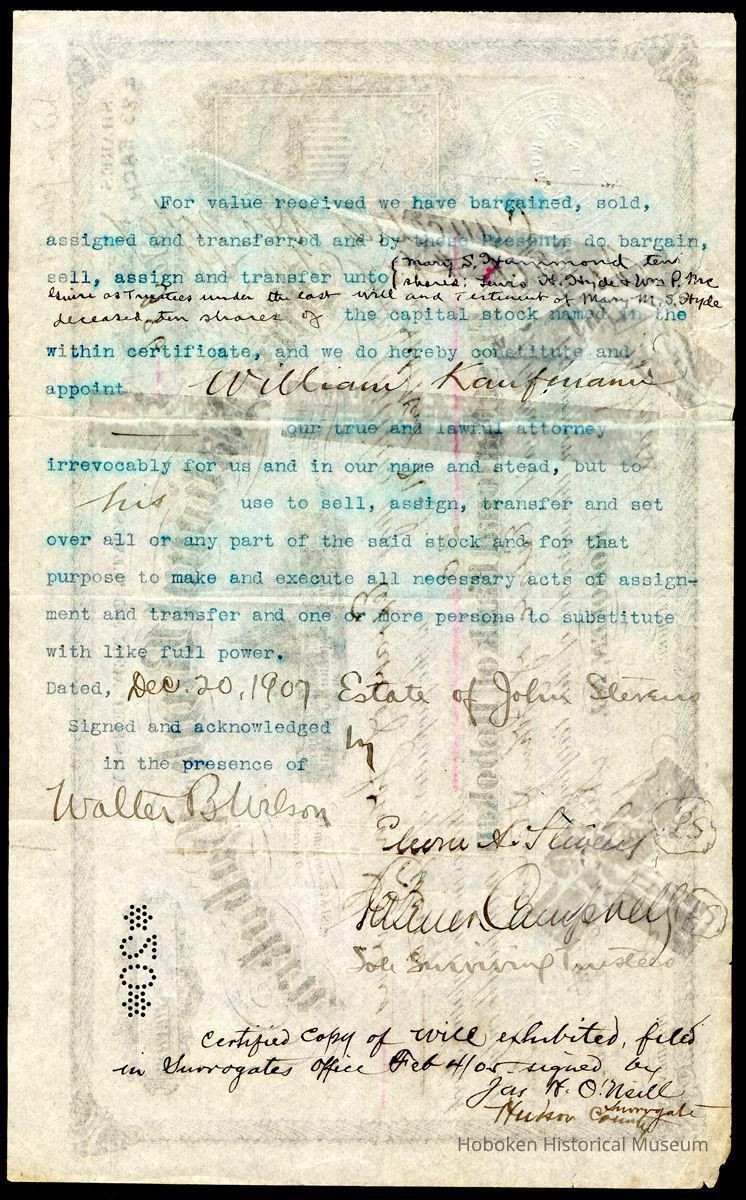 For value received we have bargained, sold,
assigned and transferred and by these Presents do bargain,
sell, assign and transfer unto { Mary S. Hammond ten
shares; Lewis H. Hyde & Wm P. Mc
as Trustees under the last will and Testiment of Mary M. S. Hyde
deceased ten shares of the capital stock named in the
within certificate, and we do hereby constitute and
appoint William Kaufmann
our true and lawful attorney
irrevocably for us and in our name and stead, but to
his use to sell, assign, transfer and set
over all or any part of the said stock and for that
purpose to make and execute all necessary acts of assign-
ment and transfer and one or more persons to substitute
with like full power.
Dated, Dec. 20, 1907 Estate of John Stevens
Signed and acknowledged by
in the presence of
Walter B Wilson
A. Stevens LS
Palmer Campbell LS
Sole Surviving Trustees
Certified Copy of Will exhibited, filed
in Surrogates Office Feb 4/05 signed by
Jas H. O'Neill
Surrogate
Hudson County
Hoboken Historical Museum